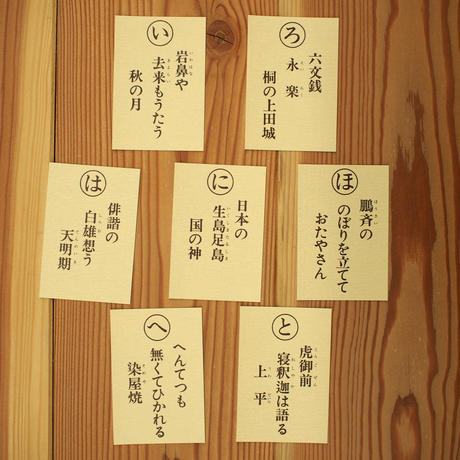 い
岩鼻や
去来もうたう
秋の月
ろ
六文銭
永楽
桐の上田城
は
俳諧の
白雄想う
天明期
に
日本の
生島足島
国の神
ほ
鵬斉の
のぼりを立てて
おたやさん
へ
へんてつも
無くてひかれる
染屋焼
と
虎御前
寝釈迦は語る
上平